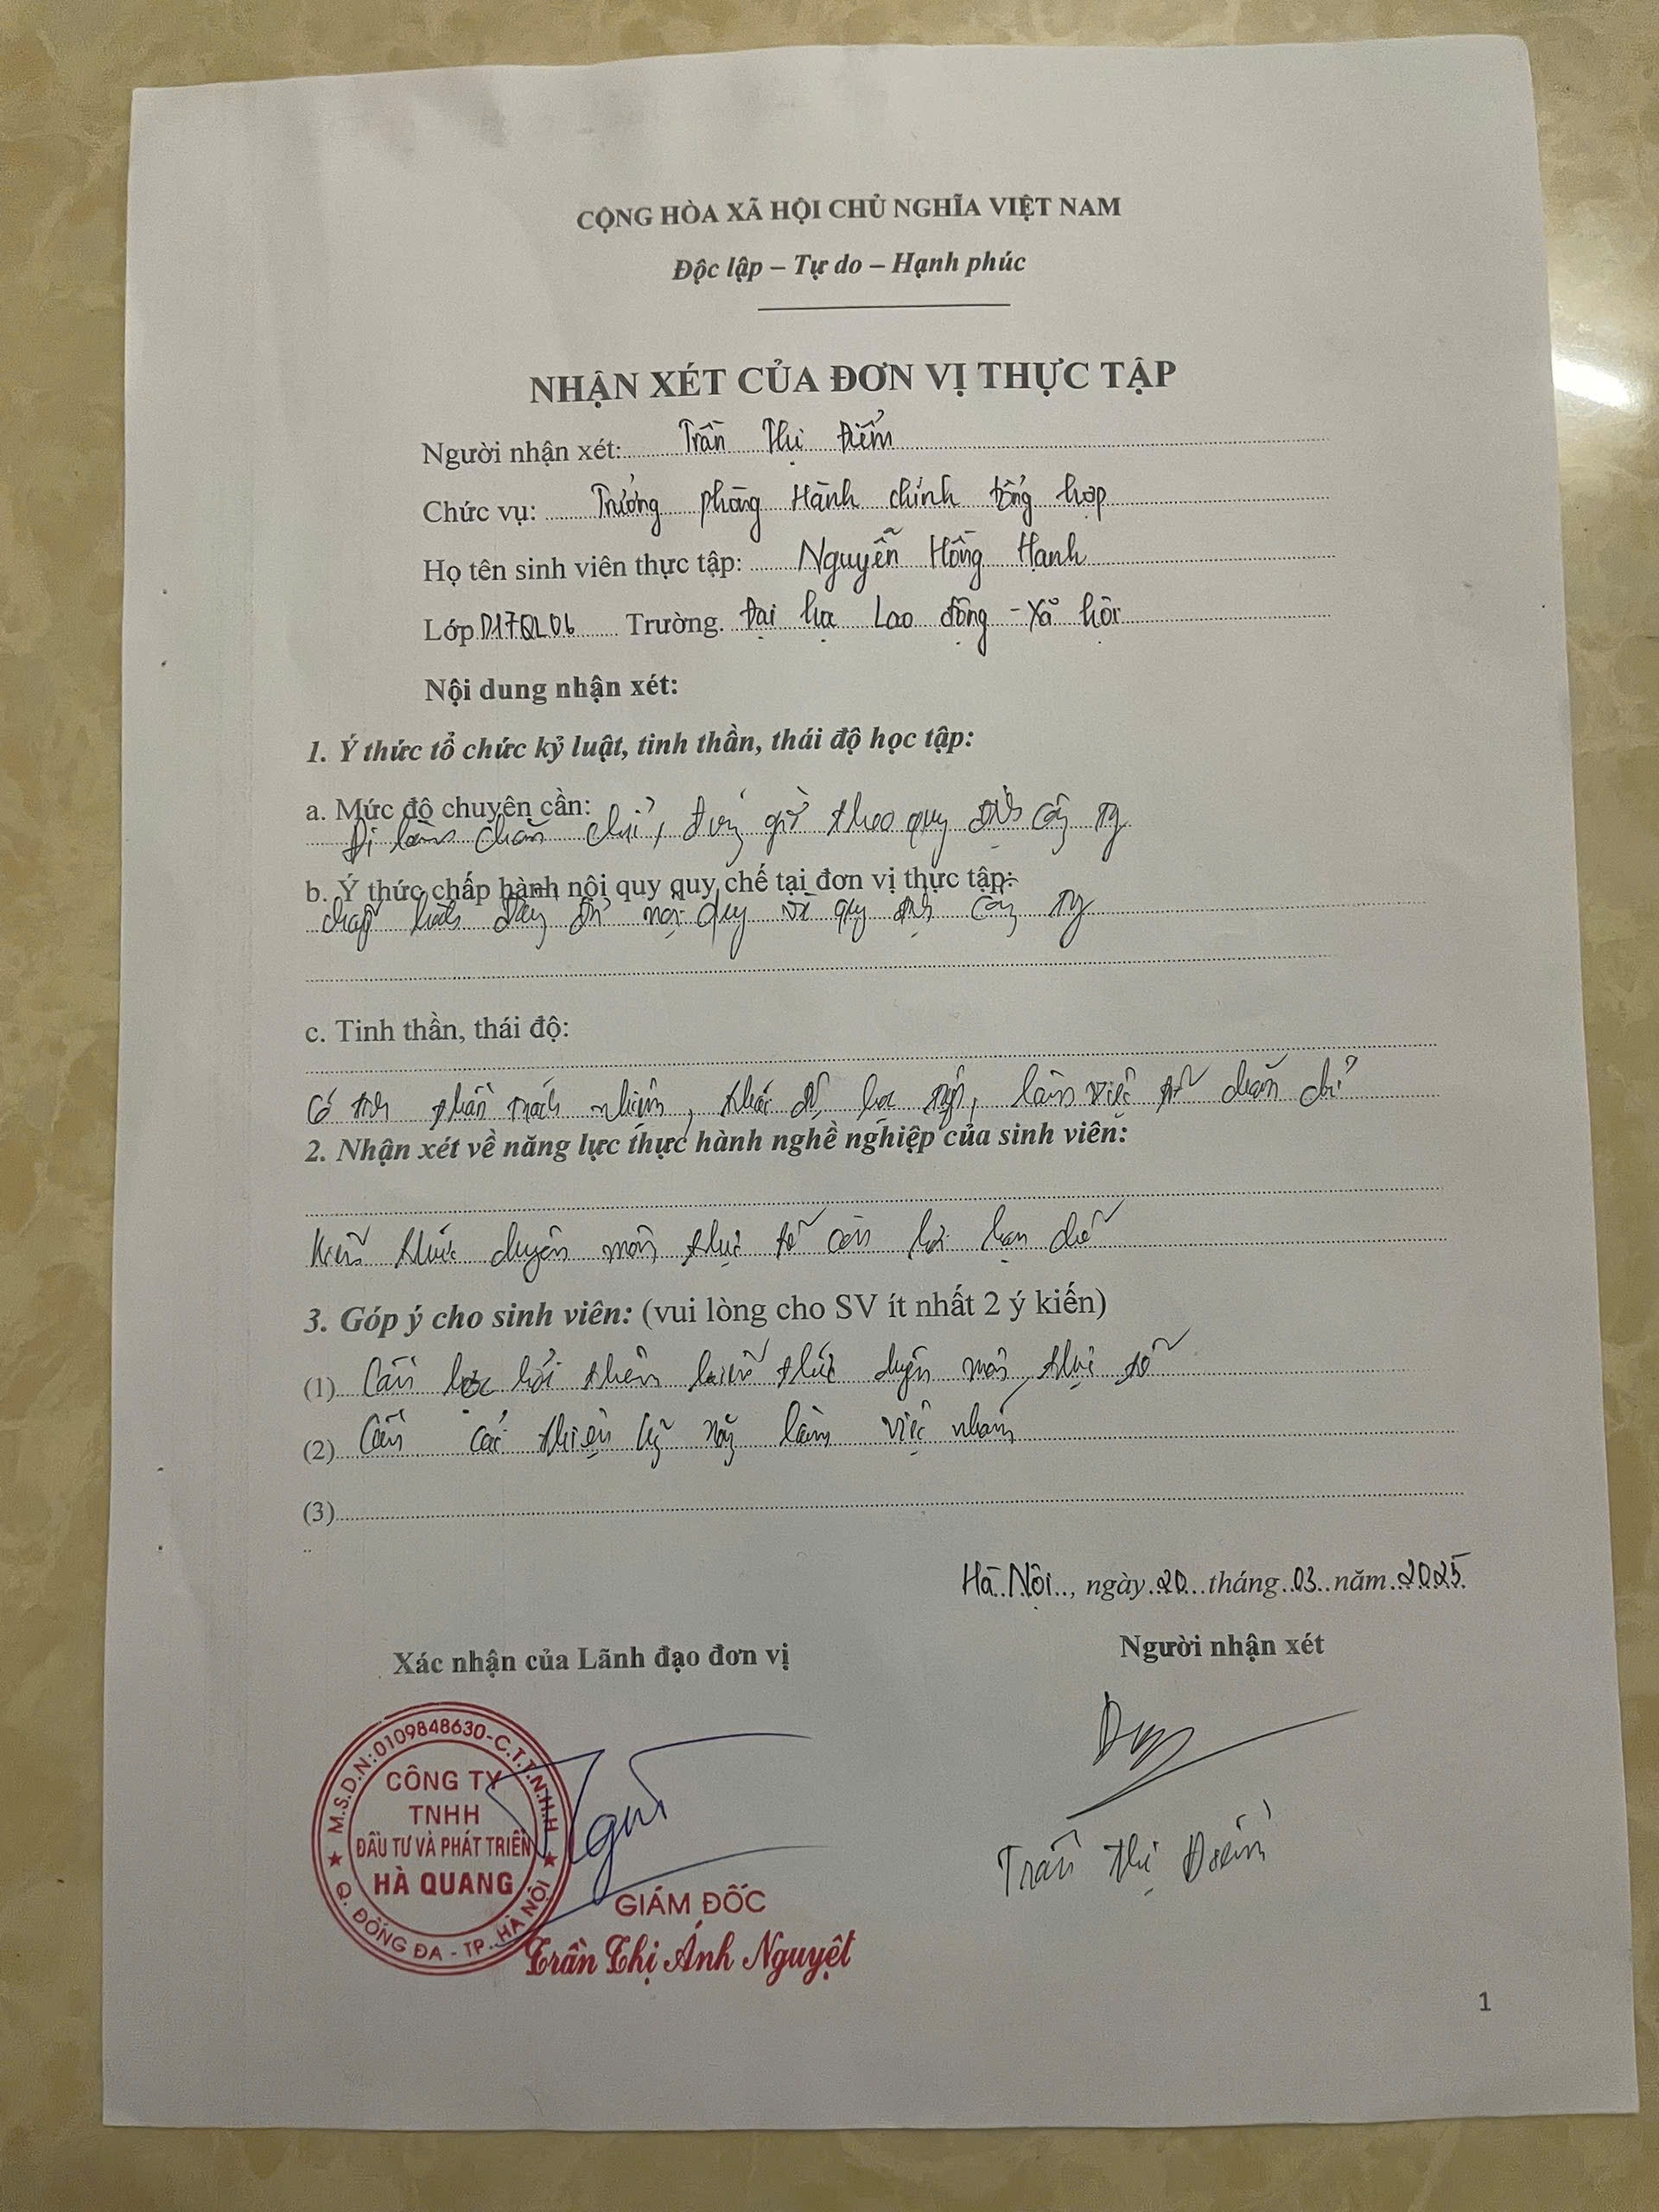 CỘNG HÒA XÃ HỘI CHỦ NGHĨA VIỆT NAM
Độc lập – Tự do – Hạnh phúc
NHẬN XÉT CỦA ĐƠN VỊ THỰC TẬP
Người nhận xét: Trần Thị Điểm
Chức vụ: Trưởng phòng Hành chính tổng hợp
Họ tên sinh viên thực tập: Nguyễn Hồng Hạnh
Lớp D17QL06 Trường. Đại học Lao động - Xã hội
Nội dung nhận xét:
1. Ý thức tổ chức kỷ luật, tinh thần, thái độ học tập:
a. Mức độ chuyên cần:
Đi làm chăm chỉ, đúng giờ theo quy định công ty
b. Ý thức chấp hành nội quy quy chế tại đơn vị thực tập:
chấp hành đầy đủ nội quy và quy định công ty
c. Tinh thần, thái độ:
Có tinh thần trách nhiệm, thái độ học tập, làm việc chăm chỉ
2. Nhận xét về năng lực thực hành nghề nghiệp của sinh viên:
Kiến thức chuyên môn thực tế còn hạn chế
3. Góp ý cho sinh viên: (vui lòng cho SV ít nhất 2 ý kiến)
(1) Cần học hỏi thêm kiến thức chuyên môn, thực tế
(2) Cần cải thiện kỹ năng làm việc nhóm
(3)
Hà Nội, ngày 20 tháng 03 năm 2025
Xác nhận của Lãnh đạo đơn vị
Người nhận xét
M.S.D.N:0109848630-C.T.T.N.H.H
CÔNG TY
TNHH
ĐẦU TƯ VÀ PHÁT TRIỂN
HÀ QUANG
Q. ĐỐNG ĐA - TP. HÀ NỘI
GIÁM ĐỐC
Trần Thị Ánh Nguyệt
Trần Thị Điểm
1